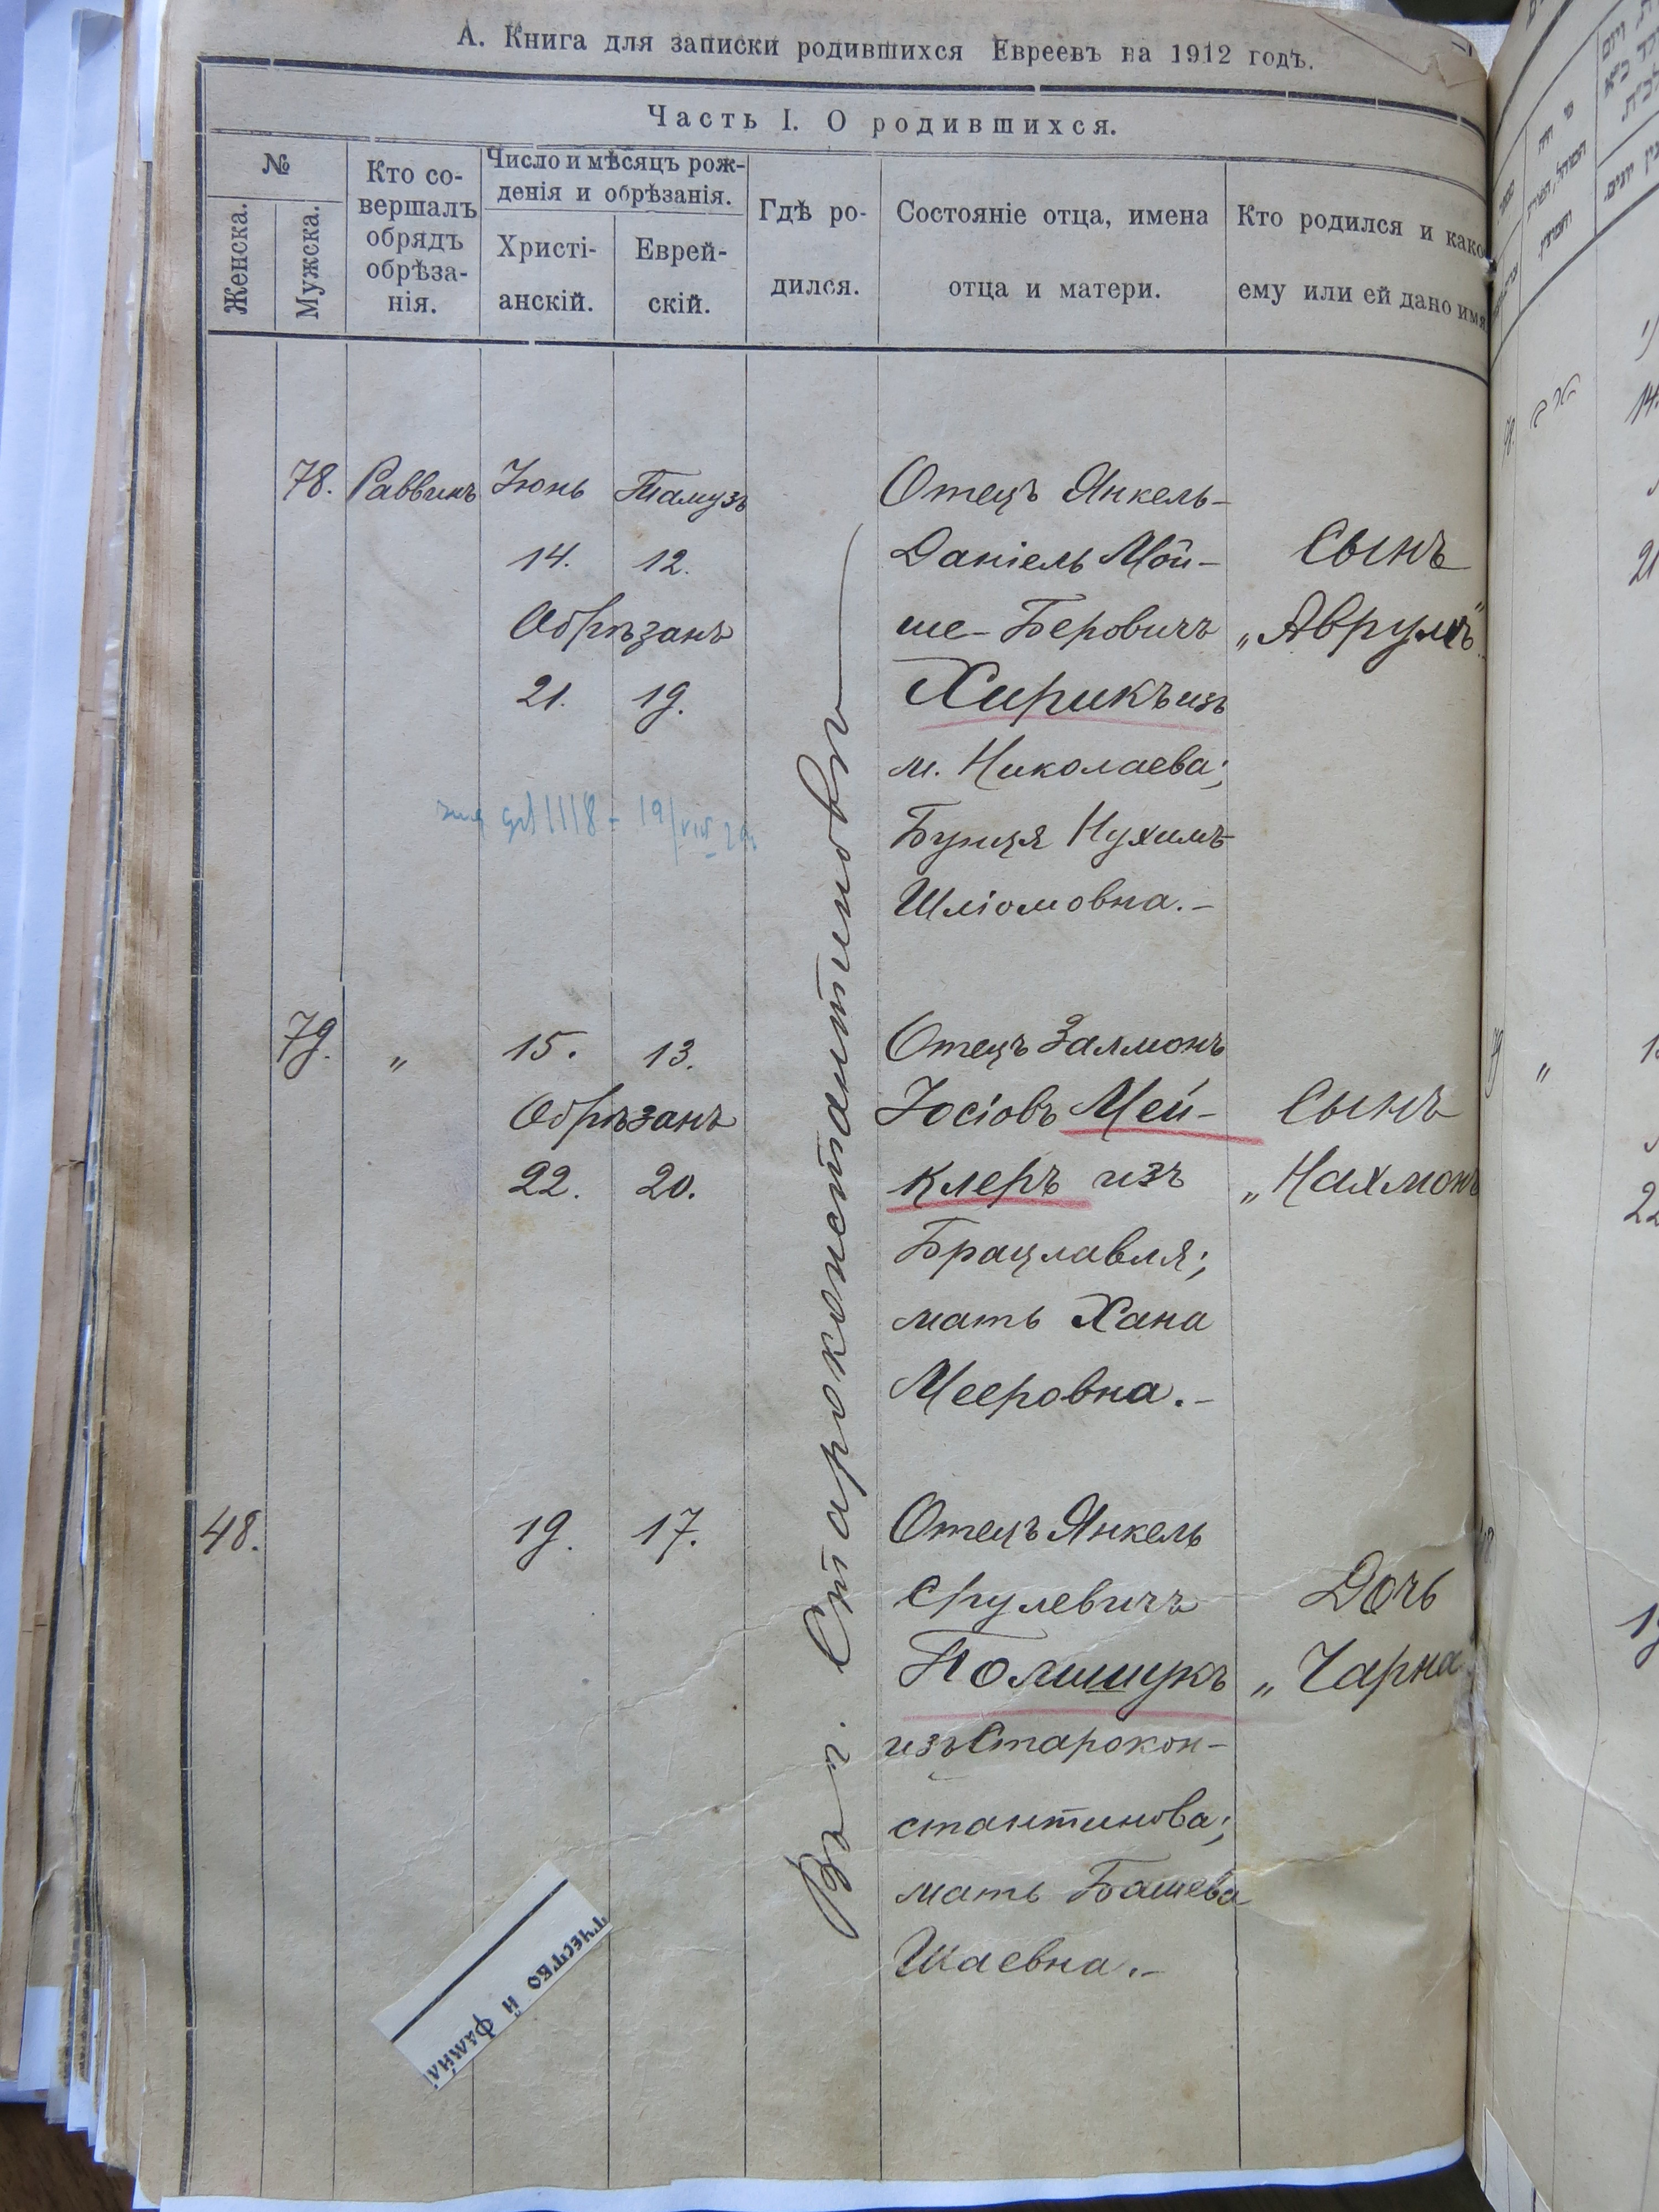 А. Книга для записки родившихся Евреевъ на 1912 годъ.
Часть I. О родившихся.
№
Женска.
Мужска.
Кто со-
вершалъ
обрядъ
обрѣза-
нія.
Число и мѣсяцъ рож-
денія и обрѣзанія.
Христі-
анскій.
Еврей-
скій.
Гдѣ ро-
дился.
Состояніе отца, имена
отца и матери.
Кто родился и како
ему или ей дано имя
78. Раввинъ Іюнь Тамузъ
14. 12.
Обрѣзанъ
21. 19.
Отецъ Янкель-
Даніель Мой-
ше-Беровичъ
Хирикъ изъ
м. Николаева;
Бунця Нухимъ
Шліомовна.-
Сынъ
„Аврумъ"
1118 - 19
Въ г. Староконстантиновѣ
79. „ 15. 13.
Обрѣзанъ
22. 20.
Отецъ Залмонъ
Іосіовъ Мей-
клеръ изъ
Брацлавля;
мать Хана
Мееровна.-
Сынъ
„Нахмонъ
48. 19. 17.
Отецъ Янкель
Срулевичъ
Полищукъ
изъ Старокон-
стантинова;
мать Башева
Шаевна.-
Дочь
„Чарна
тчество и фамил